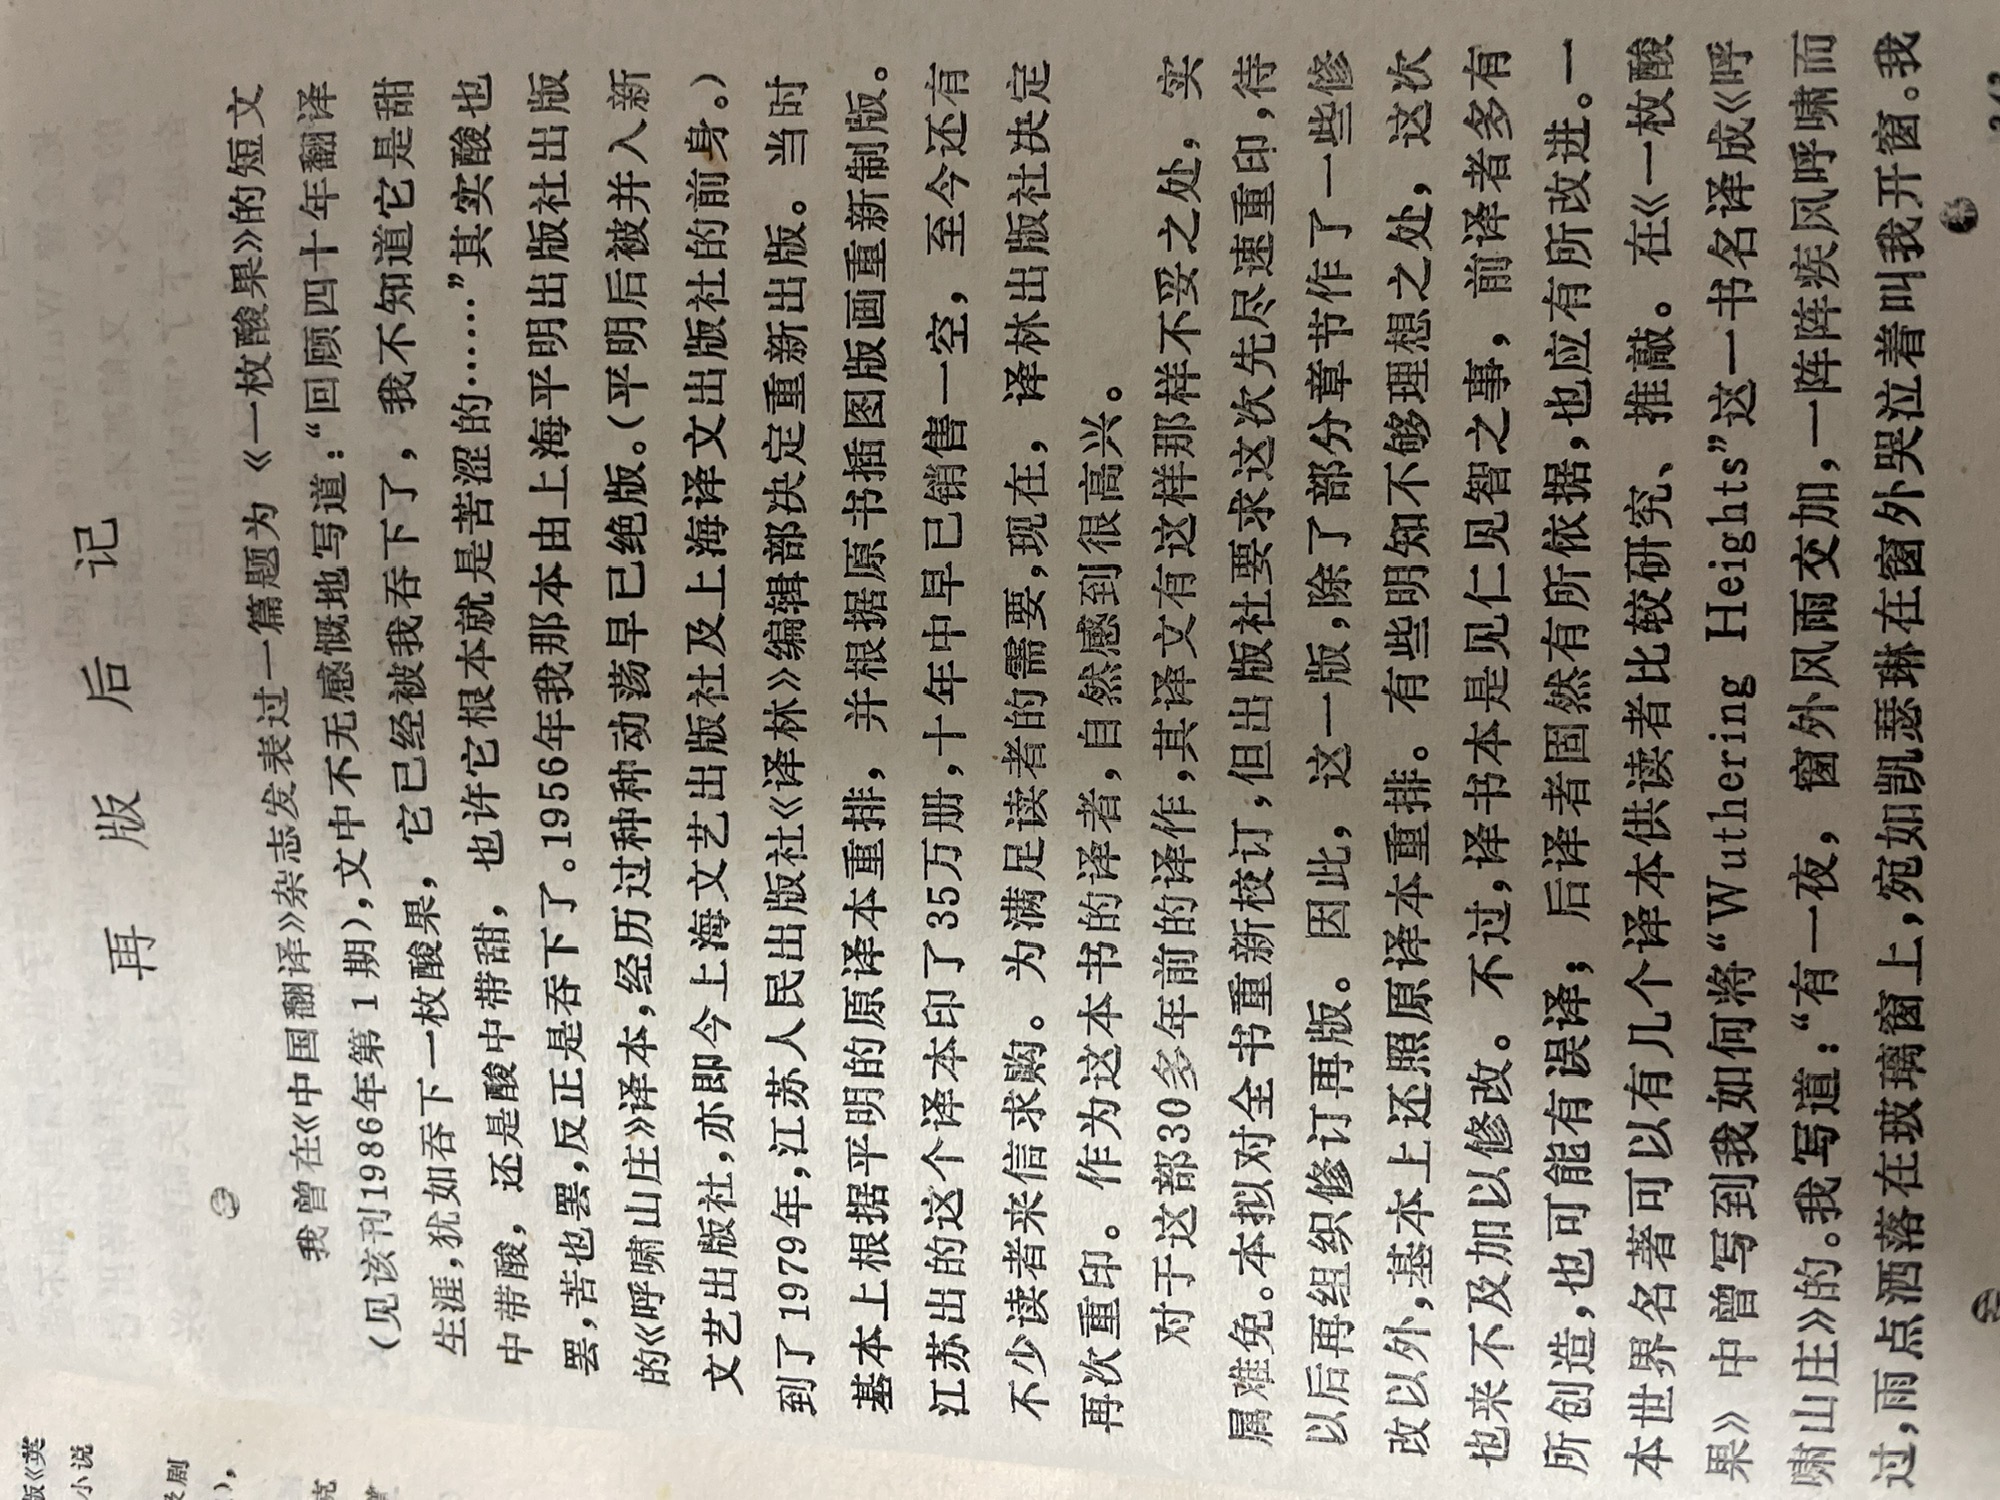 再版后记
我曾在《中国翻译》杂志发表过一篇题为《一枚酸果》的短文
(见该刊1986年第1期),文中不无感慨地写道:“回顾四十年翻译
生涯,犹如吞下一枚酸果,它已经被我吞下了,我不知道它是甜
中带酸,还是酸中带甜,也许它根本就是苦涩的……”其实酸也
罢,苦也罢,反正是吞下了。1956年我那本由上海平明出版社出版
的《呼啸山庄》译本,经历过种种动荡早已绝版。(平明后被并入新
文艺出版社,亦即今上海文艺出版社及上海译文出版社的前身。)
到了1979年,江苏人民出版社《译林》编辑部决定重新出版。当时
基本上根据平明的原译本重排,并根据原书插图版画重新制版。
江苏出的这个译本印了35万册,十年中早已销售一空,至今还有
不少读者来信求购。为满足读者的需要,现在,译林出版社决定
再次重印。作为这本书的译者,自然感到很高兴。
对于这部30多年前的译作,其译文有这样那样不妥之处,实
属难免。本拟对全书重新校订,但出版社要求这次先尽速重印,待
以后再组织修订再版。因此,这一版,除了部分章节作了一些修
改以外,基本上还照原译本重排。有些明知不够理想之处,这次
也来不及加以修改。不过,译书本是见仁见智之事,前译者多有
所创造,也可能有误译;后译者固然有所依据,也应有所改进。一
本世界名著可以有几个译本供读者比较研究、推敲。在《一枚酸
果》中曾写到我如何将“Wuthering Heights”这一书名译成《呼
啸山庄》的。我写道:“有一夜,窗外风雨交加,一阵阵疾风呼啸而
过,雨点洒落在玻璃窗上,宛如凯瑟琳在窗外哭泣着叫我开窗。我
版《英
小说
及剧